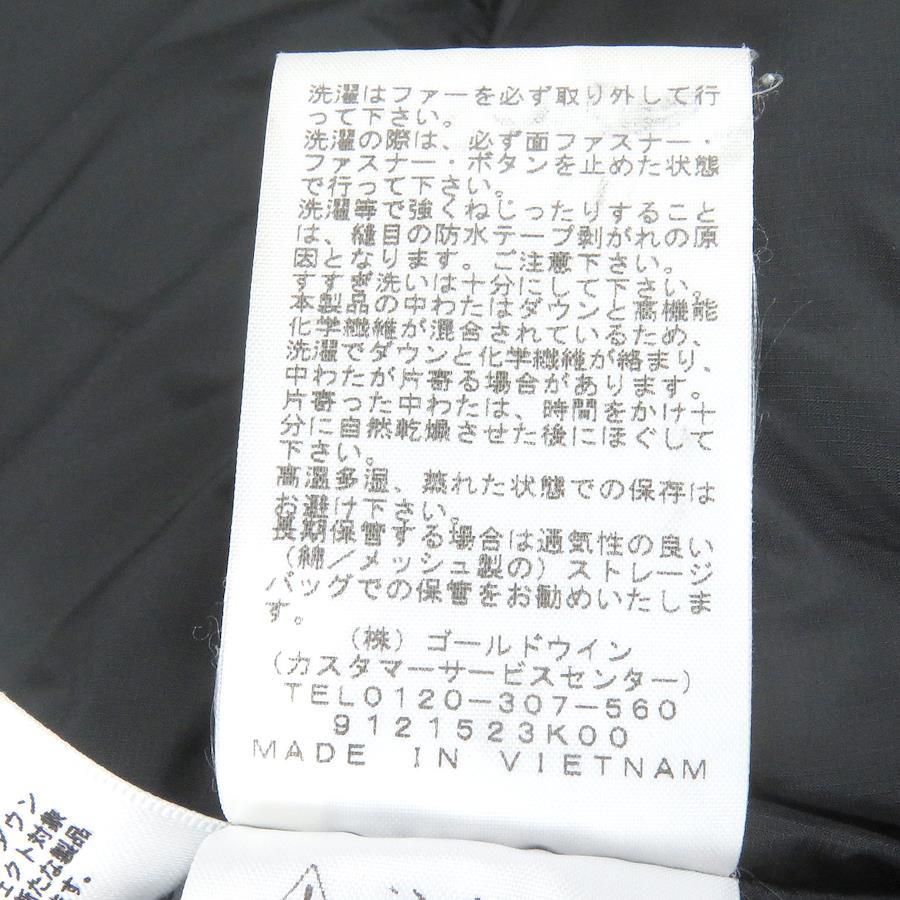 洗濯はファーを必ず取り外して行
って下さい。
洗濯の際は、必ず面ファスナー・
ファスナー・ボタンを止めた状態
で行って下さい。
洗濯等で強くねじったりすること
は、縫目の防水テープ剥がれの原
因となります。ご注意下さい。
すすぎ洗いは十分にして下さい。
本製品の中わたはダウンと高機能
化学繊維が混合されているため、
洗濯でダウンと化学繊維が絡まり、
中わたが片寄る場合があります。
片寄った中わたは、時間をかけ十
分に自然乾燥させた後にほぐして
下さい。
高温多湿、蒸れた状態での保存は
お避け下さい。
長期保管する場合は通気性の良い
(綿/メッシュ製の)ストレージ
バッグでの保管をお勧めいたしま
す。
(株)ゴールドウイン
(カスタマーサービスセンター)
TEL0120-307-560
9121523K00
MADE IN VIETNAM
ダウン
ェクト対象
新たな製品
す。